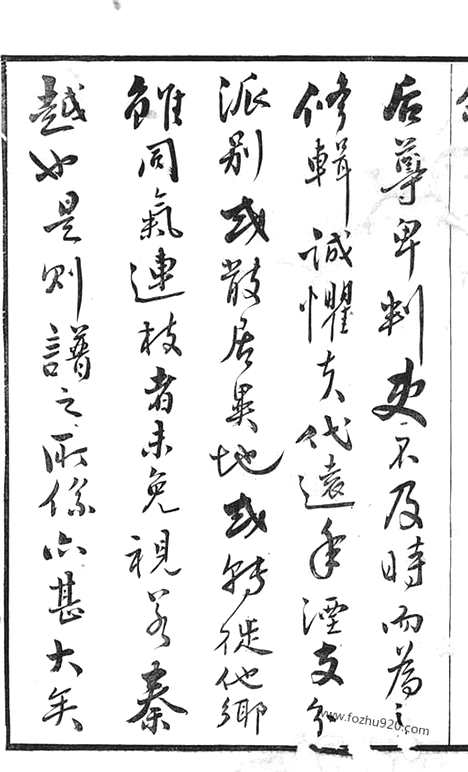 后尊卑判吏不及時而為之
修輯誠懼夫代遠年湮支分
派别或散居異地或轉徙他鄉
雖同氣連枝者未免視若秦
越也是则譜之所係亦甚大矣
www.fozhu920.com